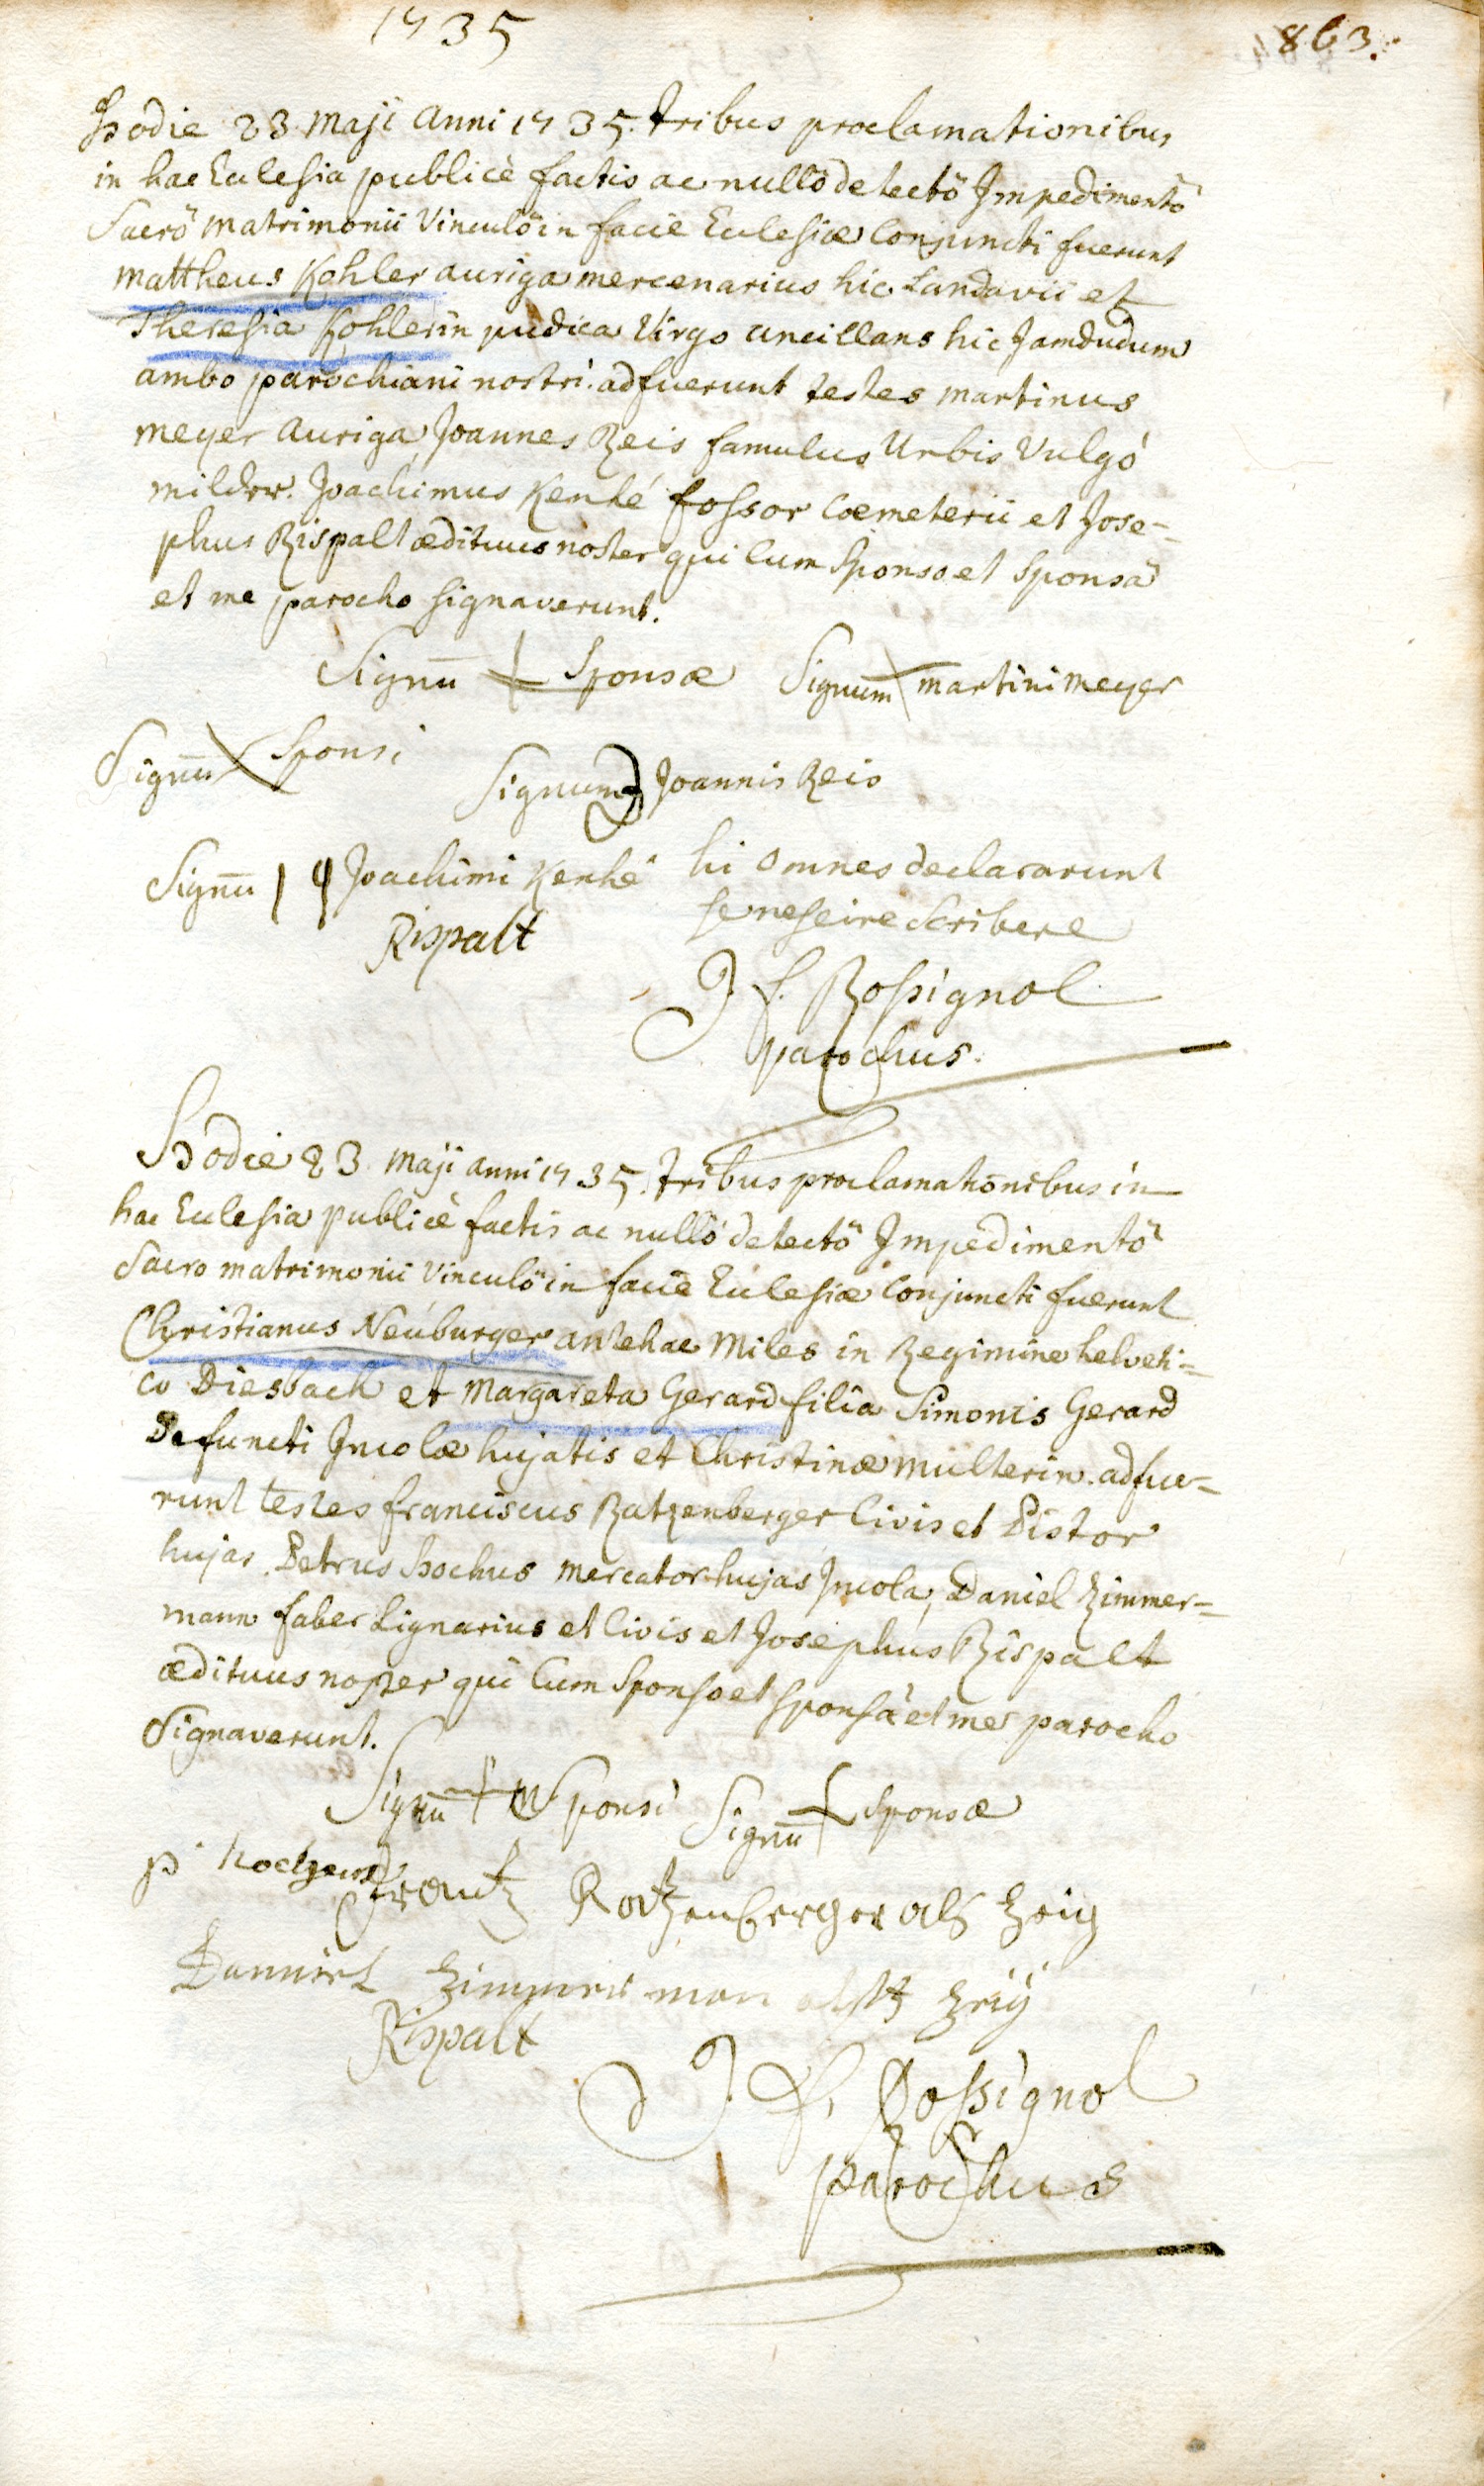 1735
863.
Hodie 23 Maji anni 1735. tribus proclamationibus
in hac Ecclesia publicè factis ac nullô detectô Impedimentô
Sacrô matrimonii Vinculô in facie Ecclesiæ Conjuncti fuerunt
Mattheus Kohler auriga mercenarius hic Landavii et
Theresia Kohlerin pudica Virgo ancillans hic Jamdudum
ambo parochiani nostri. adfuerunt testes Martinus
Meyer Auriga, Joannes Reis famulus Urbis Vulgò
milder. Joachimus Kenhé fossor Coemeterii et Jose-
phus Rispalt ædituus noster qui Cum Sponso et Sponsâ
et me parocho signaverunt.
Signū Sponsæ Signum martini meyer
Signū Sponsi
Signum Joannis Reis
Signū Joachimi Kenhé hi omnes declararunt
se nescire Scribere
Rispalt
J f. Rossignol
parochus.
Hodie 23 Maji anni 1735. tribus proclamationibus in
hac Ecclesia publicè factis ac nullô detectô Impedimentô
Sacro matrimonii Vinculô in facie Ecclesiæ Conjuncti fuerunt
Christianus Neuburger antehac Miles in Regimine helveti-
co Diesbach et Margareta Gerard filia Simonis Gerard
Defuncti Incolæ hujatis et Christinæ Mülterin. adfue-
runt testes franciscus Ratzenberger Civis et Pistor
hujas. Petrus Hochus Mercator hujas Incola, Daniel Zimmer-
mann faber Lignarius et Civis et Josephus Rispalt
ædituus noster qui Cum Sponso et Sponsâ et me parocho
Signaverunt.
Signū Sponsi Signū Sponsæ
Frantz Ratzenberger als Zeig
Danniel Zimmerman Zeig
Rispalt
J f. Rossignol
parochus